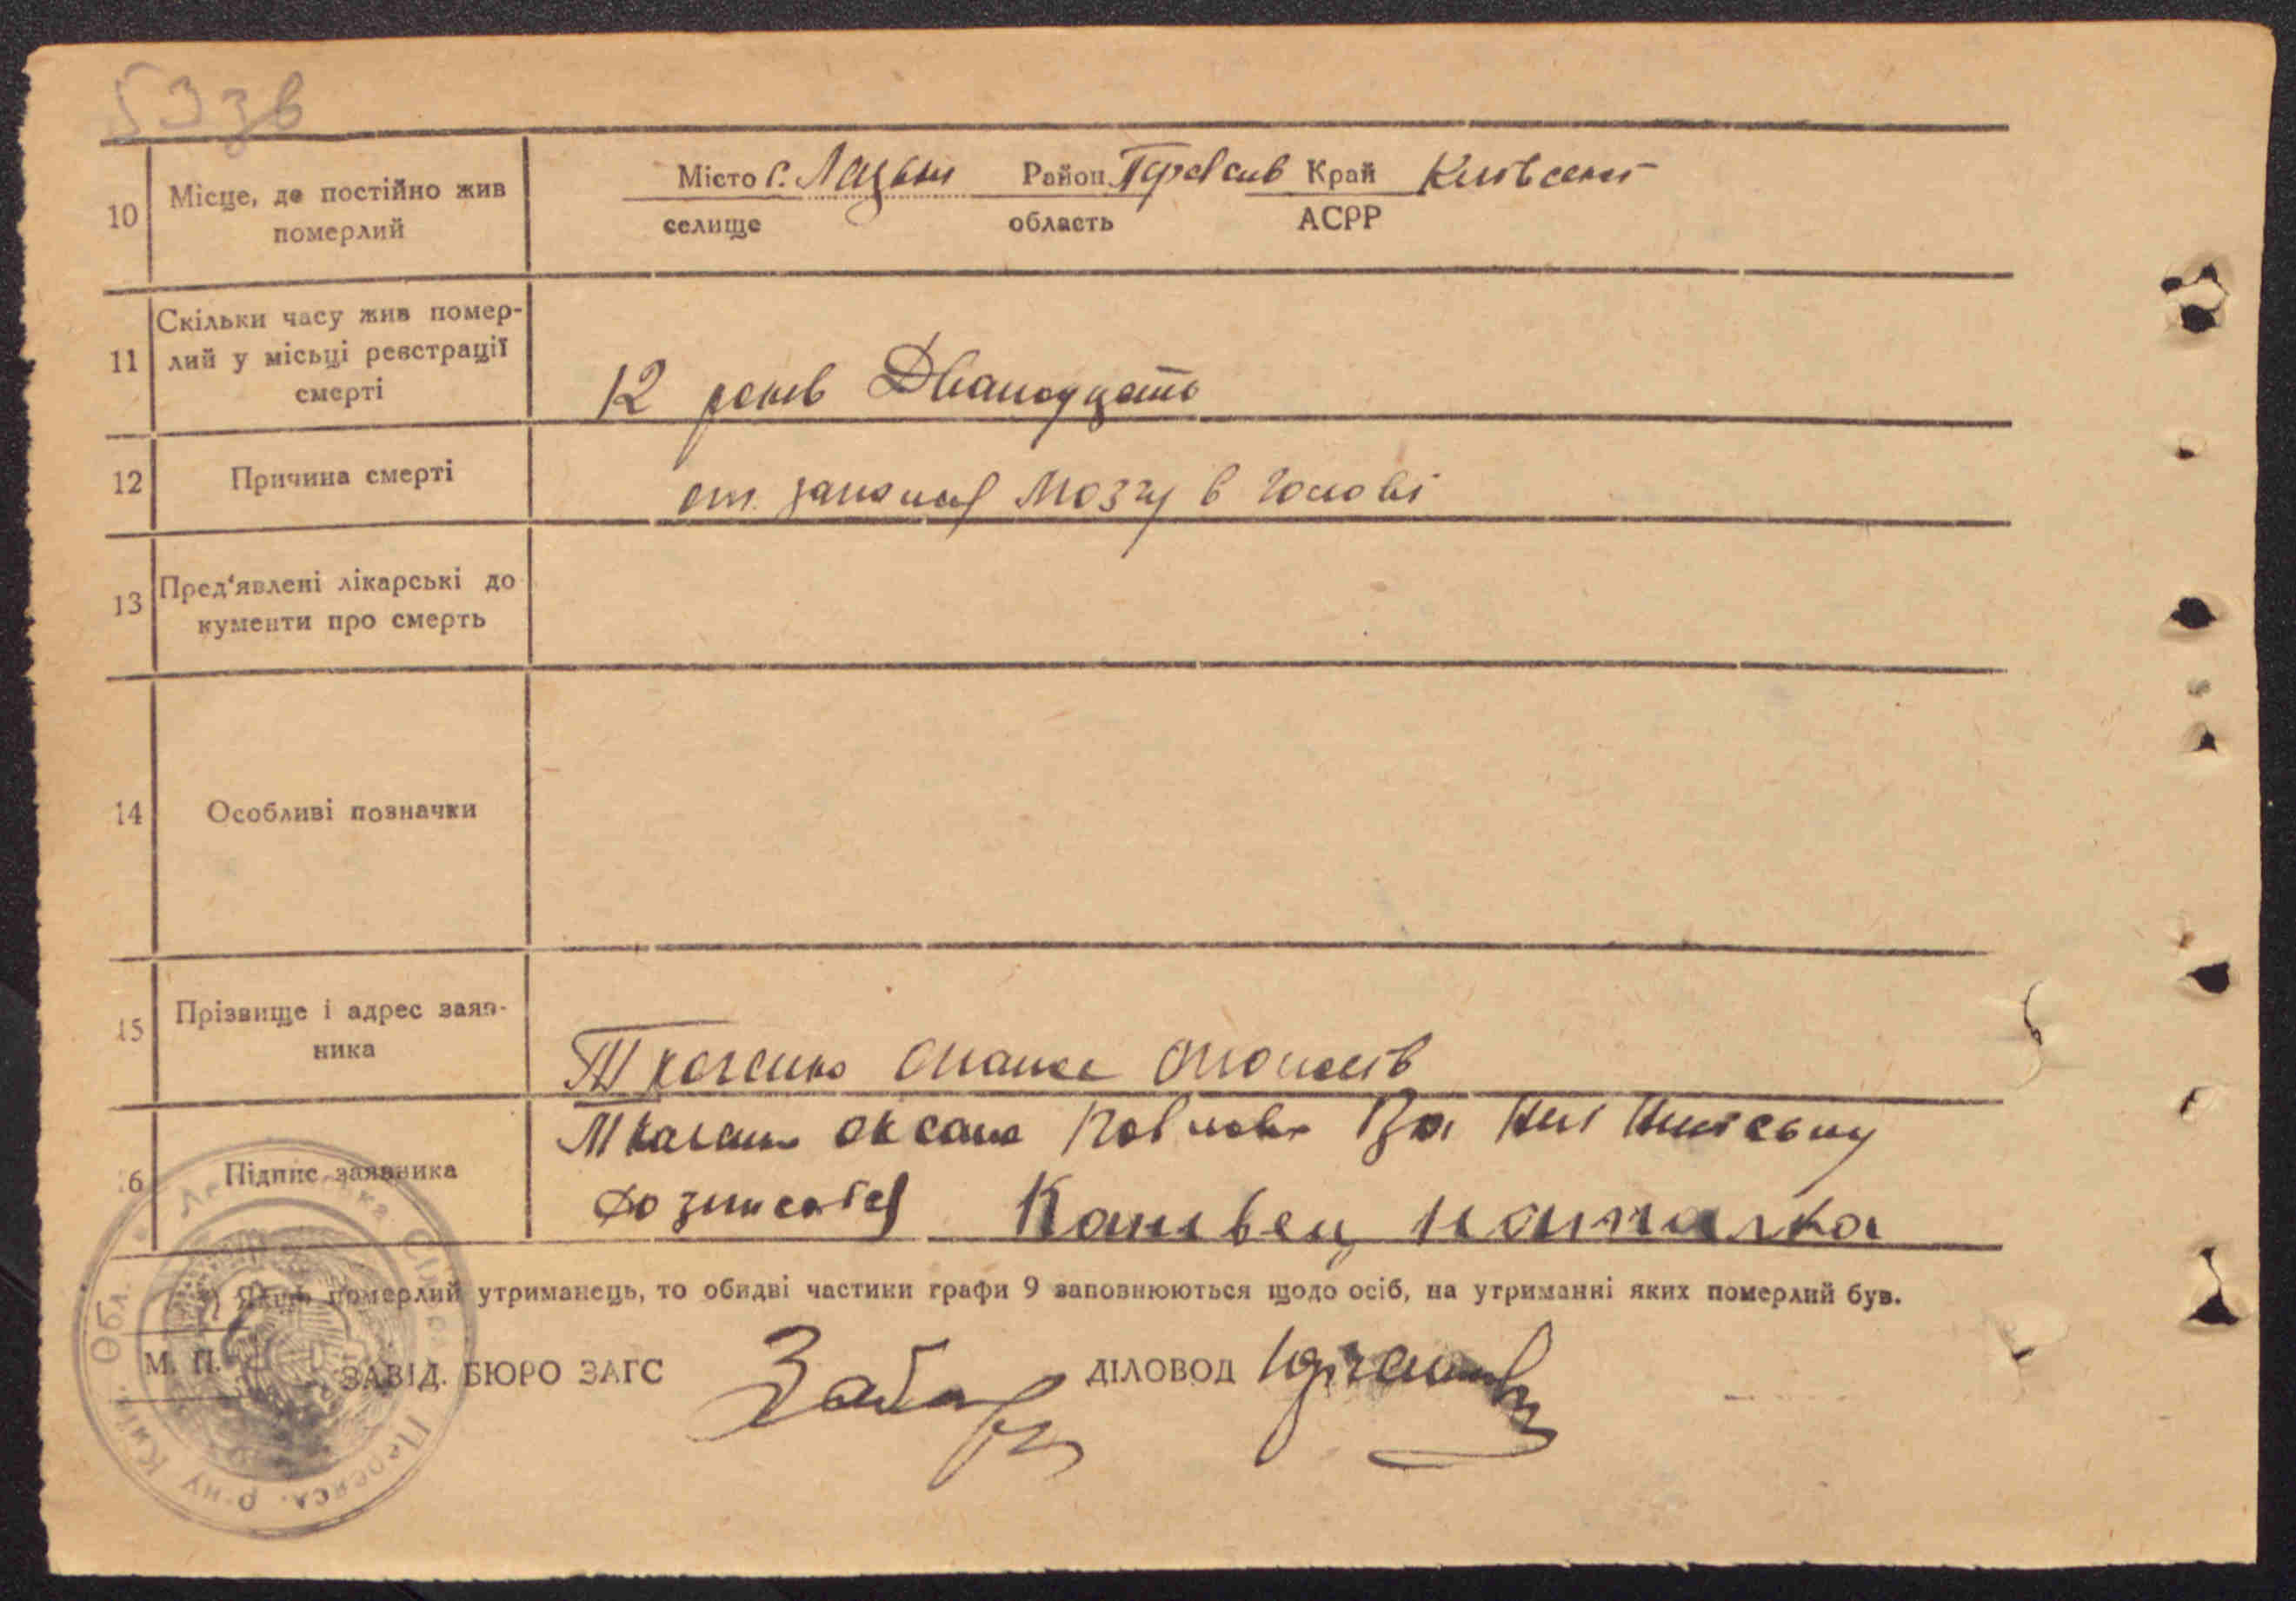 533в
10 Місце, де постійно жив померлий
Місто с. Лецьки Район Переяслів Край Київської
селище область АСРР
11 Скільки часу жив помер-
лий у місьці реєстрації
смерті
12 років Дванодцать
12 Причина смерті
от запалья мозгу в голові
13 Пред'явлені лікарські до
кументи про смерть
14 Особливі позначки
15 Прізвище і адрес заяв-
ника
Ткаченко
16 Підпис заявника
Ткаченко Оксана Павловна За
Канівец наталка
Якщо померлий утриманець, то обидві частини графи 9 заповнюються щодо осіб, на утриманні яких померлий був.
М. П. ЗАВІД. БЮРО ЗАГС ДІЛОВОД
Сіль Переясл. р-ну Київ. Обл.